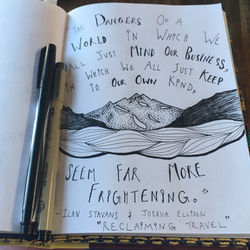 "The Dangers Of a
World in Which We
All Just Mind Our Business,
in Which We All Just Keep
To Our Own Kind,
Seem Far More
Frightening."
- Ilan Stavans & Joshua Ellison
"Reclaiming Travel"